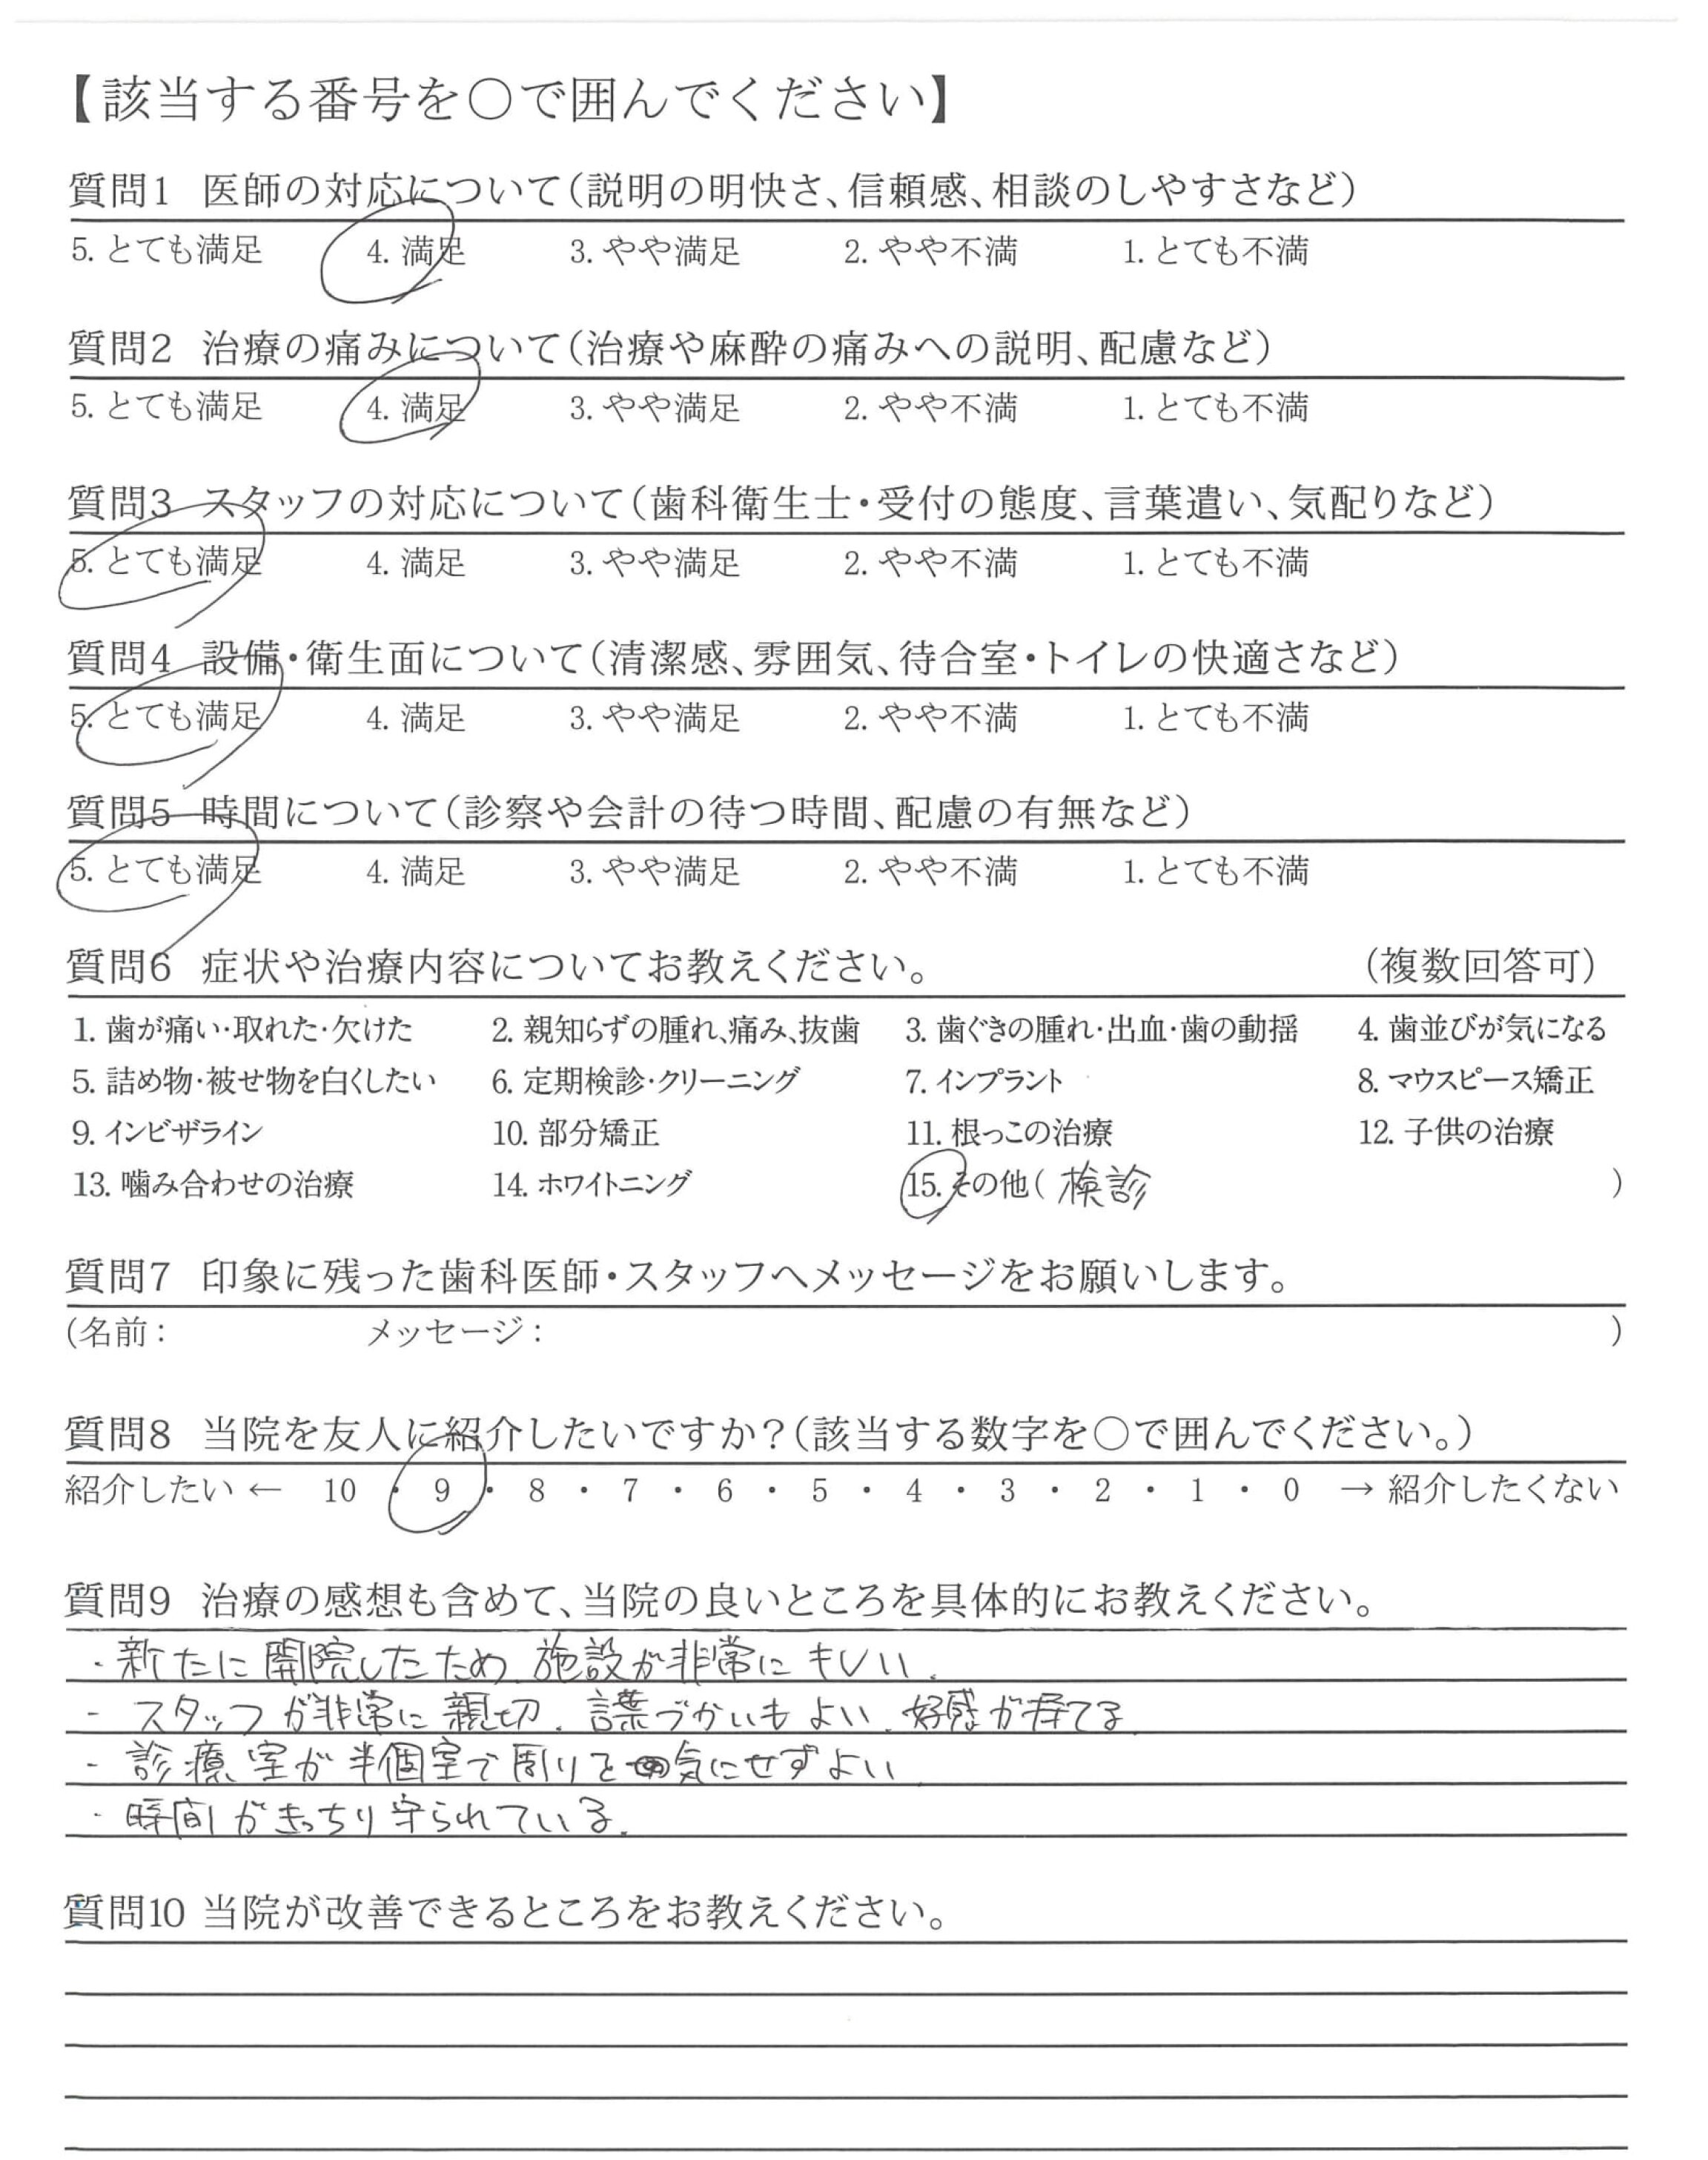 【該当する番号を○で囲んでください】
質問1 医師の対応について(説明の明快さ、信頼感、相談のしやすさなど)
5. とても満足 4. 満足 3. やや満足 2. やや不満 1. とても不満
質問2 治療の痛みについて(治療や麻酔の痛みへの説明、配慮など)
5. とても満足 4. 満足 3. やや満足 2. やや不満 1. とても不満
質問3 スタッフの対応について(歯科衛生士・受付の態度、言葉遣い、気配りなど)
5. とても満足 4. 満足 3. やや満足 2. やや不満 1. とても不満
質問4 設備・衛生面について(清潔感、雰囲気、待合室・トイレの快適さなど)
5. とても満足 4. 満足 3. やや満足 2. やや不満 1. とても不満
質問5 時間について(診察や会計の待つ時間、配慮の有無など)
5. とても満足 4. 満足 3. やや満足 2. やや不満 1. とても不満
質問6 症状や治療内容についてお教えください。 (複数回答可)
1. 歯が痛い・取れた・欠けた 2. 親知らずの腫れ、痛み、抜歯 3. 歯ぐきの腫れ・出血・歯の動揺 4. 歯並びが気になる
5. 詰め物・被せ物を白くしたい 6. 定期検診・クリーニング 7. インプラント 8. マウスピース矯正
9. インビザライン 10. 部分矯正 11. 根っこの治療 12. 子供の治療
13. 噛み合わせの治療 14. ホワイトニング 15. その他( 検診 )
質問7 印象に残った歯科医師・スタッフへメッセージをお願いします。
(名前: メッセージ: )
質問8 当院を友人に紹介したいですか?(該当する数字を○で囲んでください。)
紹介したい ← 10 ・ 9 ・ 8 ・ 7 ・ 6 ・ 5 ・ 4 ・ 3 ・ 2 ・ 1 ・ 0 → 紹介したくない
質問9 治療の感想も含めて、当院の良いところを具体的にお教えください。
・新たに開院したため、施設が非常にキレい。
- スタッフが非常に親切。言葉づかいもよい。好感が持てる
- 診療室が半個室で周りを気にせずよい
・時間がきっちり守られている。
質問10 当院が改善できるところをお教えください。